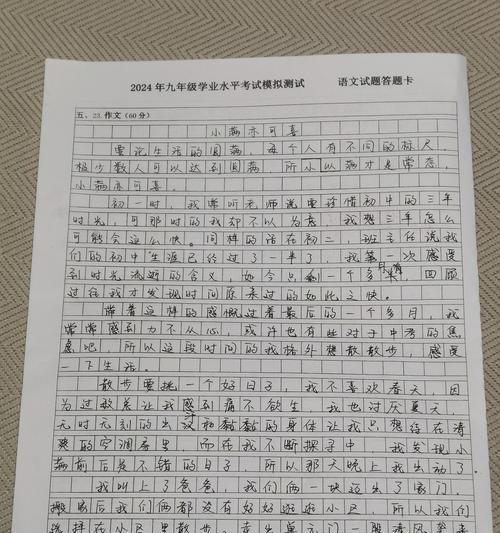 2024年九年级学业水平考试模拟测试 语文试题答题卡
五、23.作文(60分)
小满亦可喜
要论生活的圆满，每个人有不同的标尺，
极少数人可以达到圆满，所以小满才是常态，
小满亦可喜。
初一时，我常听老师说要珍惜初中的三年
时光，可那时的我却不以为意，我想三年怎么
可能会这么快。同样的话在初二，班主任说我
们的初中生涯已经过了一半了，我第一次感受
到时光流逝的含义，如今只剩一个多月，回顾
过往我才发现时间原来过的如此之快。
带着这样的感慨过着最后的一个多月，我
常常感到力不从心，或许也有些对于中考的焦
虑吧，所以这段时间的我格外想散散步，感受
一下生活。
散步要挑一个好日子，我不喜欢春天，因
为过敏总让我感到痛不欲生，我也讨厌夏天，
无时无刻的出汗和黏黏的身体让我只想待在清
爽的空调房里，而在我不断探寻中，我发现小
满前后是不错的日子，所以那天晚上我出动了。
我叫上了爸爸，我们俩一块迈出了家门，
搬家后我们俩都没有好好逛逛小区，所以我们
选择在小区里散步。走出单元门一股清风登来